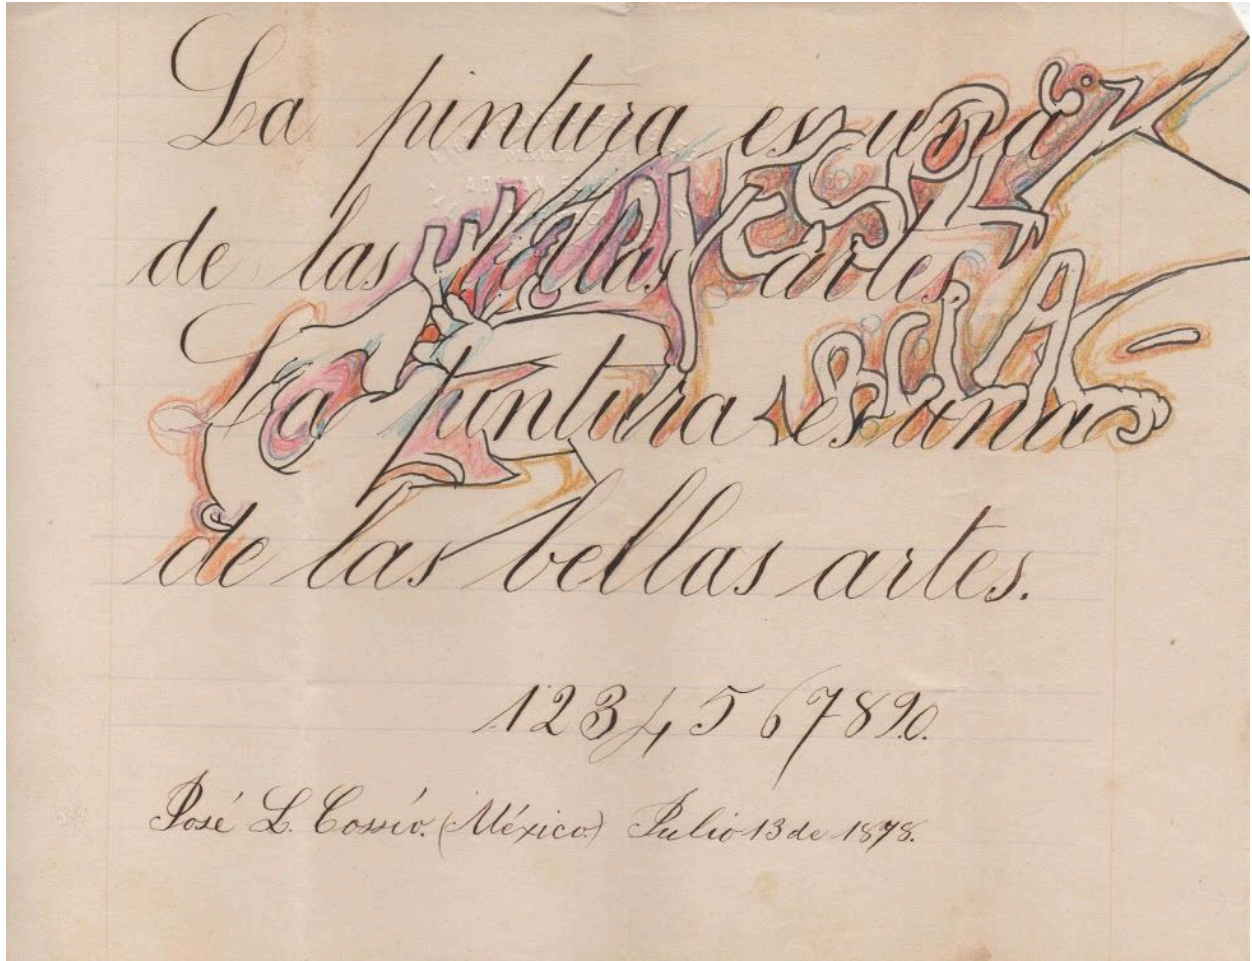 La pintura es una
de las bellas artes.
La pintura es una
de las bellas artes.
1 2 3 4 5 6 7 8 9.0.
José L. Cossío. (México) Julio 13 de 1878.